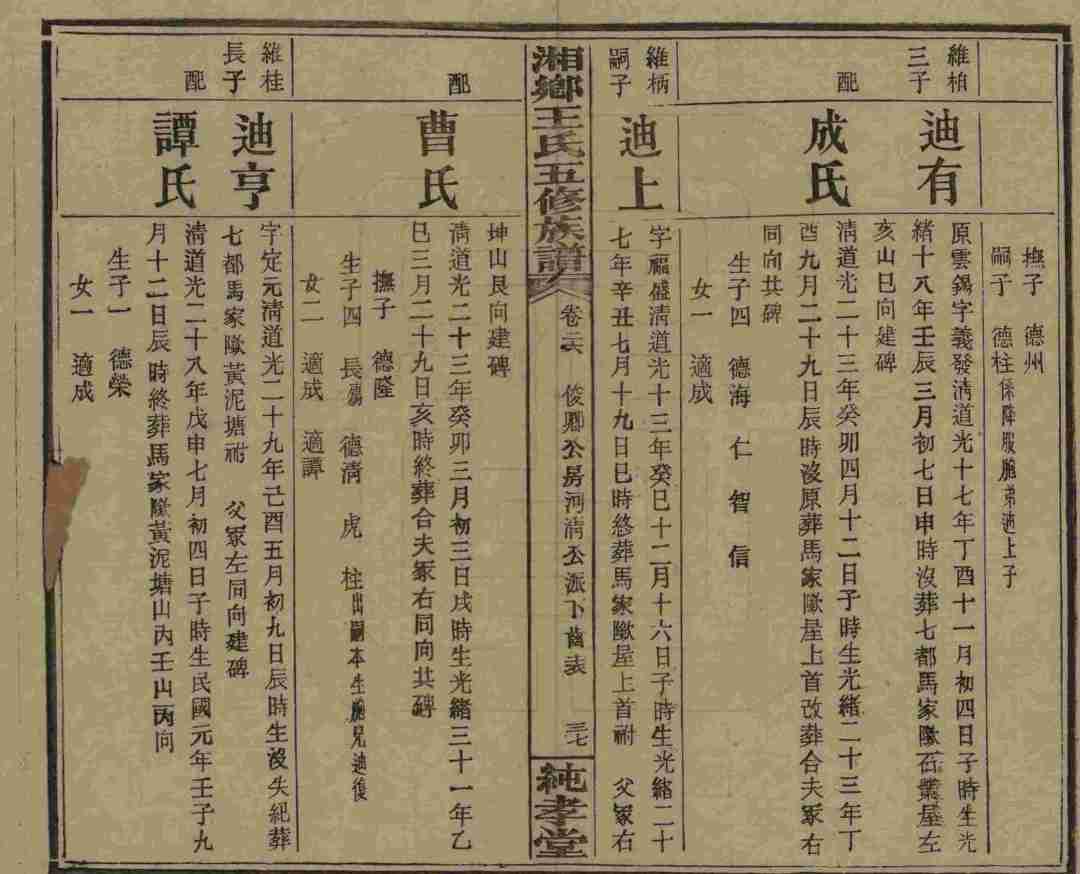 撫子 德州
嗣子 德柱係降服胞弟迪上子
維柏
三子
迪有
原雲錫字義發清道光十七年丁酉十一月初四日子時生光
緒十八年壬辰三月初七日申時沒葬七都馬家隞石叢屋左
亥山巳向建碑
配
成氏
清道光二十三年癸卯四月十二日子時生光緒二十三年丁
酉九月二十九日辰時沒原葬馬家隞屋上首改葬合夫冢右
同向共碑
生子四 德海 仁 智 信
女一 適成
維柄
嗣子
迪上
字福盛清道光十三年癸巳十二月十六日子時生光緒二十
七年辛丑七月十九日巳時終葬馬家隞屋上首祔 父冢右
湘鄉王氏五修族譜
卷二六 俊卿公房河清公派下齒表 三七
純孝堂
坤山艮向建碑
配
曹氏
清道光二十三年癸卯三月初三日戌時生光緒三十一年乙
巳三月二十九日亥時終葬合夫冢右同向共碑
撫子 德隆
生子四 長殤 德清 虎 柱出嗣本生胞兄迪後
女二 適成 適譚
維桂
長子
迪亨
字定元清道光二十九年己酉五月初九日辰時生沒失紀葬
七都馬家隞黃泥塘祔 父冢左同向建碑
配
譚氏
清道光二十八年戊申七月初四日子時生民國元年壬子九
月十二日辰時終葬馬家隞黃泥塘山內壬山丙向
生子一 德榮
女一 適成